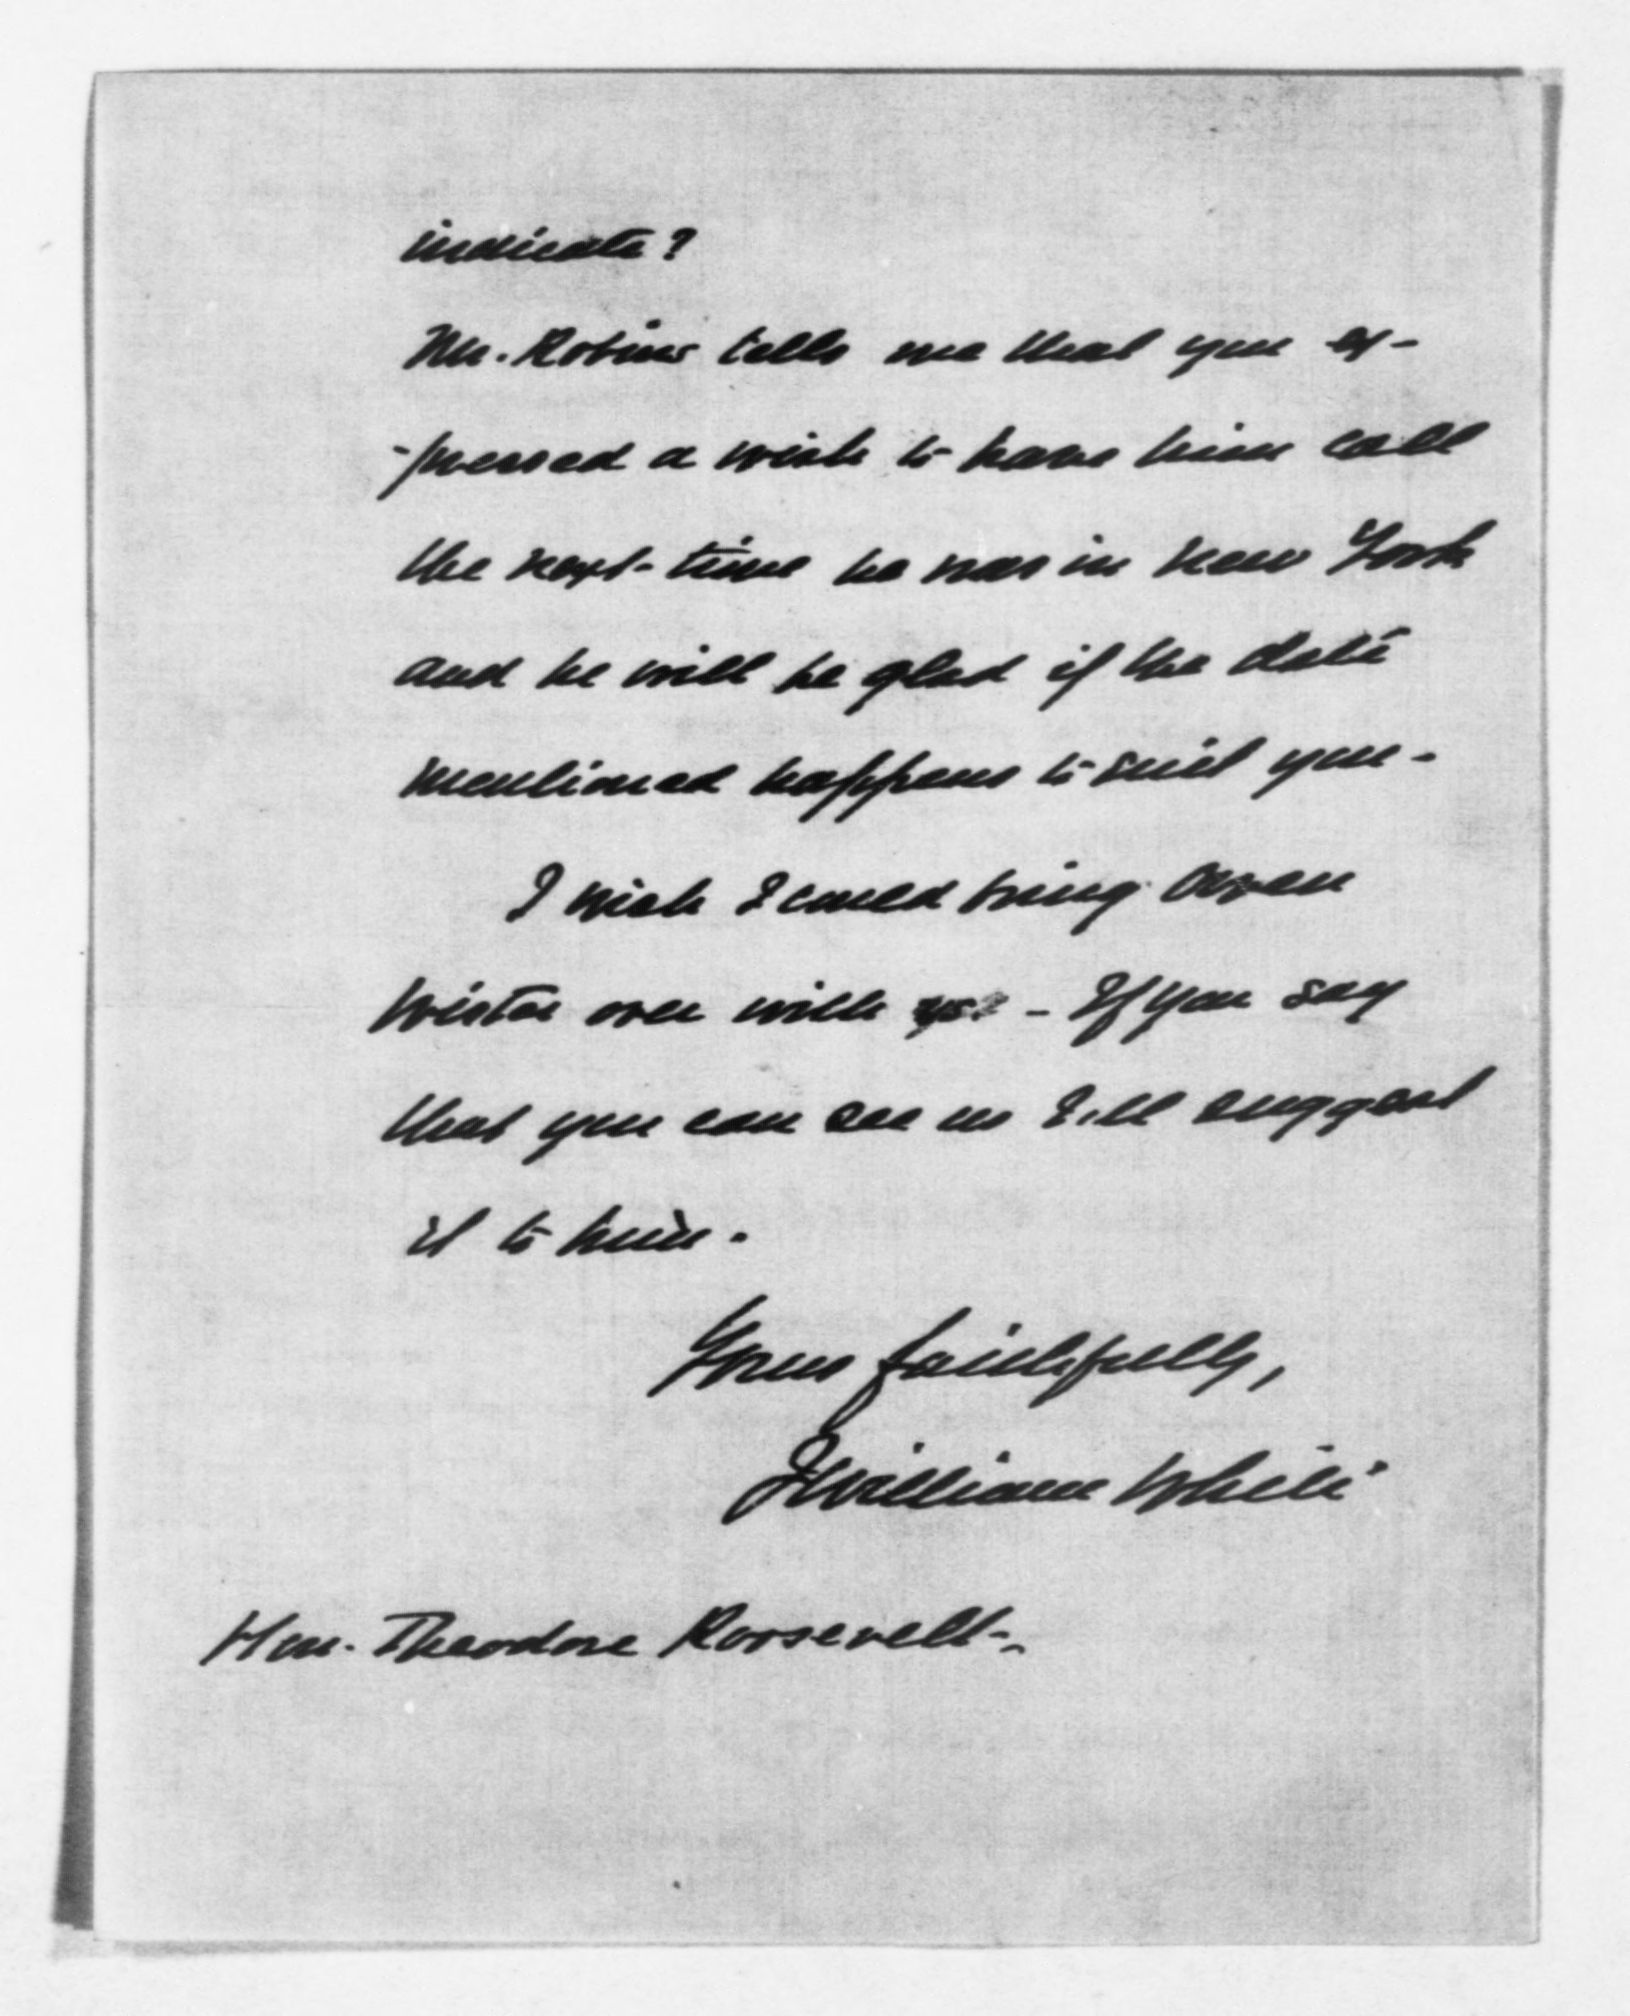 indicate?
Mr. Robins tells me that you ex-
-pressed a wish to have him call
the next time he was in New York
and he will be glad if the date
mentioned happens to suit you.
I wish I could bring Owen
Wister over with us - If you say
that you can see us I'll suggest
it to him.
Yours faithfully,
J William White
Hon. Theodore Roosevelt.